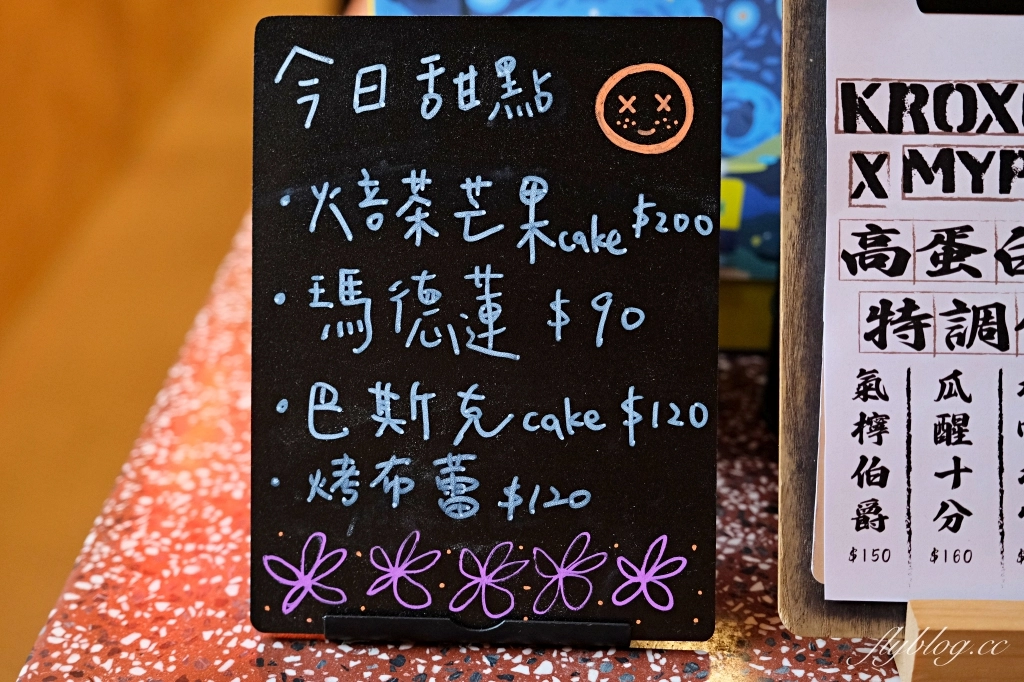 今日甜點
·焙茶芒果cake $200
·瑪德蓮 $90
·巴斯克cake $120
·烤布蕾 $120
KROX
X MYP
高蛋白
特調
氣檸伯爵
$150
瓜醒十分
$160
flyblog.cc